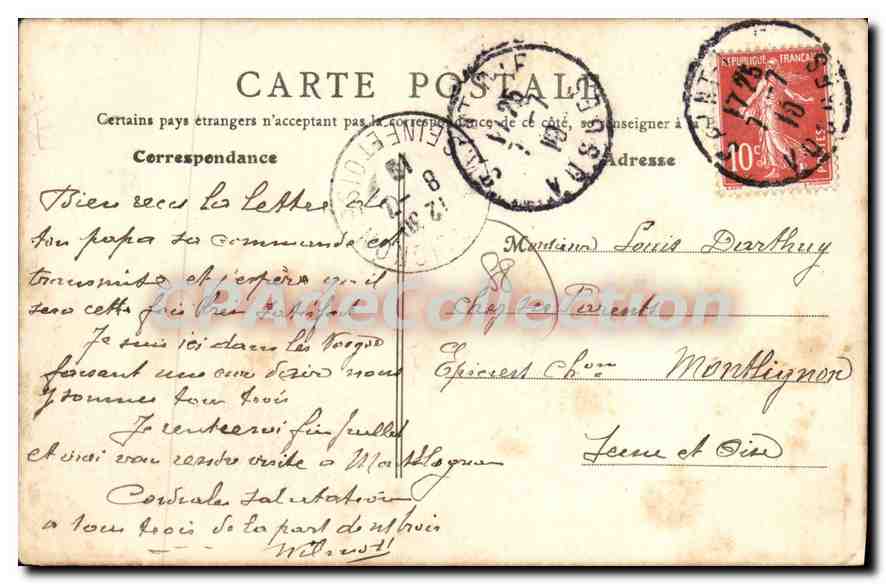 CARTE POSTALE
Certains pays étrangers n'acceptant pas la correspondance de ce côté, se renseigner à
Correspondance
Adresse
REPUBLIQUE FRANÇAISE
10c POSTES
17 25
7-7
10
VOSGES
SEINE ET OISE
8 - 7
10
Bien recu la lettre de
ton papa sa commande est
transmise et j'espère qu'il
sera cette fois tres satisfait
Je suis ici dans les Vosges
faisant une cure desire nous
y sommes tous trois
Je rentrerai fin Juillet
et irai vous rendre visite a Montlignon
Cordiales salutations
a tous trois de la part de nous trois
Wilmott
Monsieur Louis Darthuy
chez ses Parents
Epicerie Chon Montlignon
Seine et Oise
58
CPArteCollection